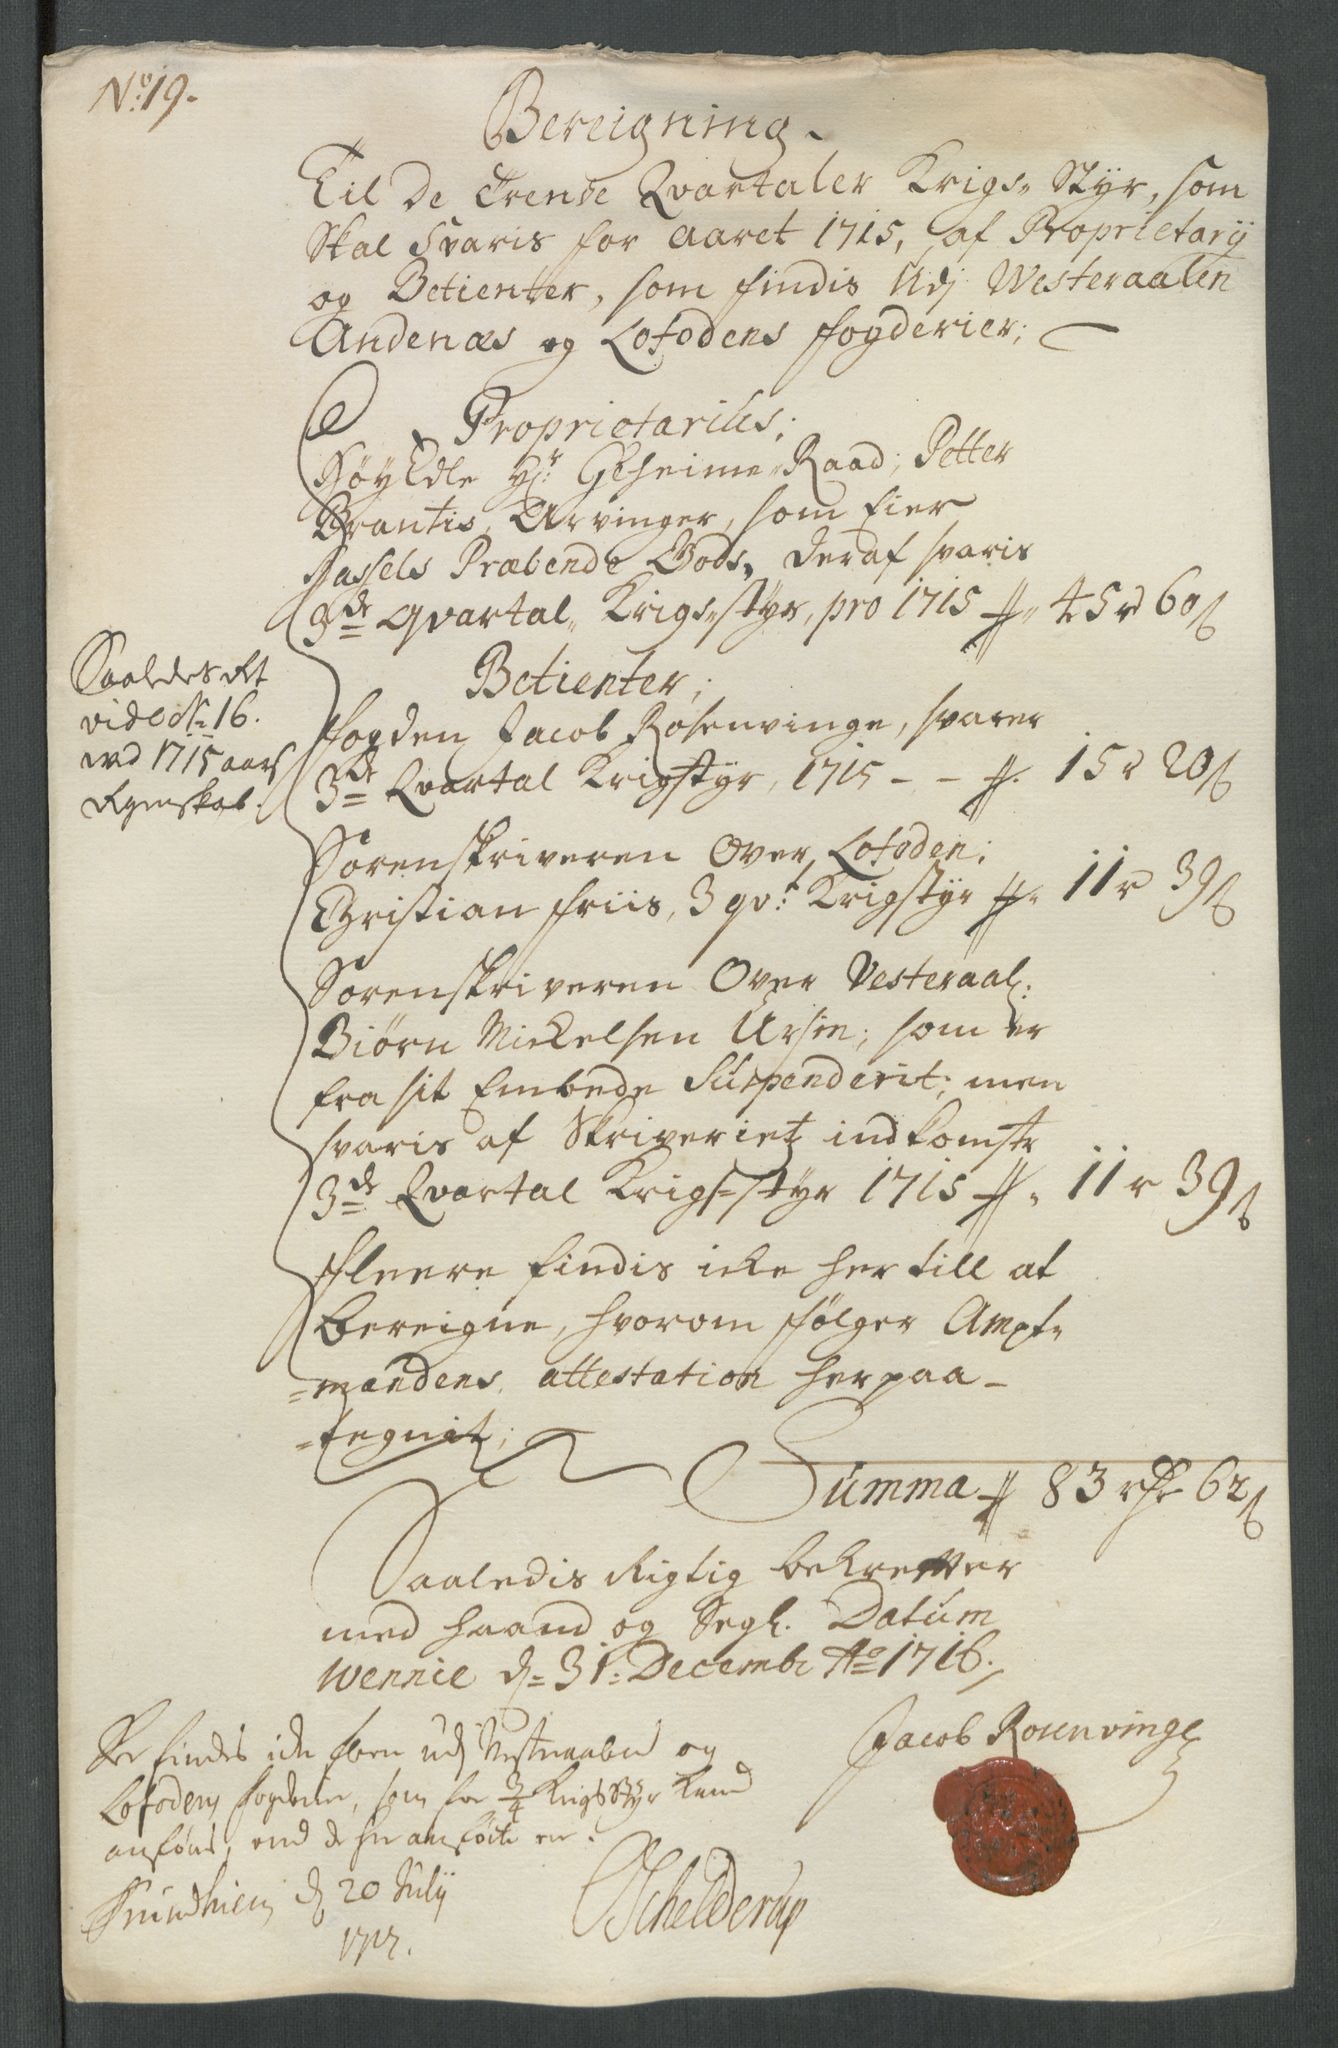 No 19.
Bereigning.
Til de trende Qvartaler Krigs Styr, som
skal Svaris for Aaret 1715, af Proprietarij
og Betienter, som findis Udj Westeraalen
Andenæs og Lofodens fogderier;
Proprietarius;
HøyEdle Hr Geheime Raad, Petter
Brantis, Arvinger, som Eier
Hassels Præbende Gods, deraf svaris
3de Qvartal Krigs=styr, pro 1715 45 r 60 ß
Saaledes ført
vide No 16.
ved 1715 aars
Regenskab.
Betienter;
Fogden Jacob Rosenvinge, svarer
3de Qvartal Krigstyr, 1715 - - 15 r 20 ß
Sorenskriveren over Lofoden;
Christian Friis, 3 qvt Krigstyr 11 r 39 ß
Sorenskriveren Over Vesteraal:
Biørn Mickelsen Ursin; som er
fra sit Embede Suspenderit; men
svaris af Skriveriets indkomster
3de Qvartal Krigs=styr 1715 11 r 39 ß
Fleere findis icke her till at
bereigne, hvorom følger Ampt=
=mandens attestation herpaa-
=tegnit;
Summa 83 rdr 62 ß
Saaledis Rigtig bekrefter
med haand og Segl. Datum
Wennie d= 31: Decembr Ao 1716.
Jacob Rosenvinge
Der findes icke fleere udj Vesteraalen og
Lofodens fogderie, som for 3/4 Krigs Styr kand
anføres, end de her anførte er.
Trundhiem d 20 Julij
1717.
Schelderup